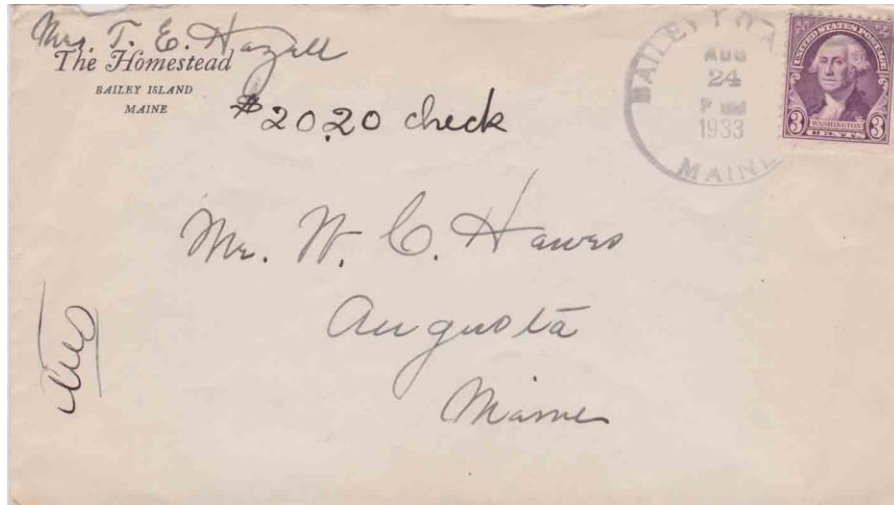 Mrs. T. E. Hazell
The Homestead
BAILEY ISLAND
MAINE
$20.20 check
BAILEY
AUG
24
P M
1933
MAINE
UNITED STATES POSTAGE
3 WASHINGTON 3
Mr. W. C. Hawes
Augusta
Maine